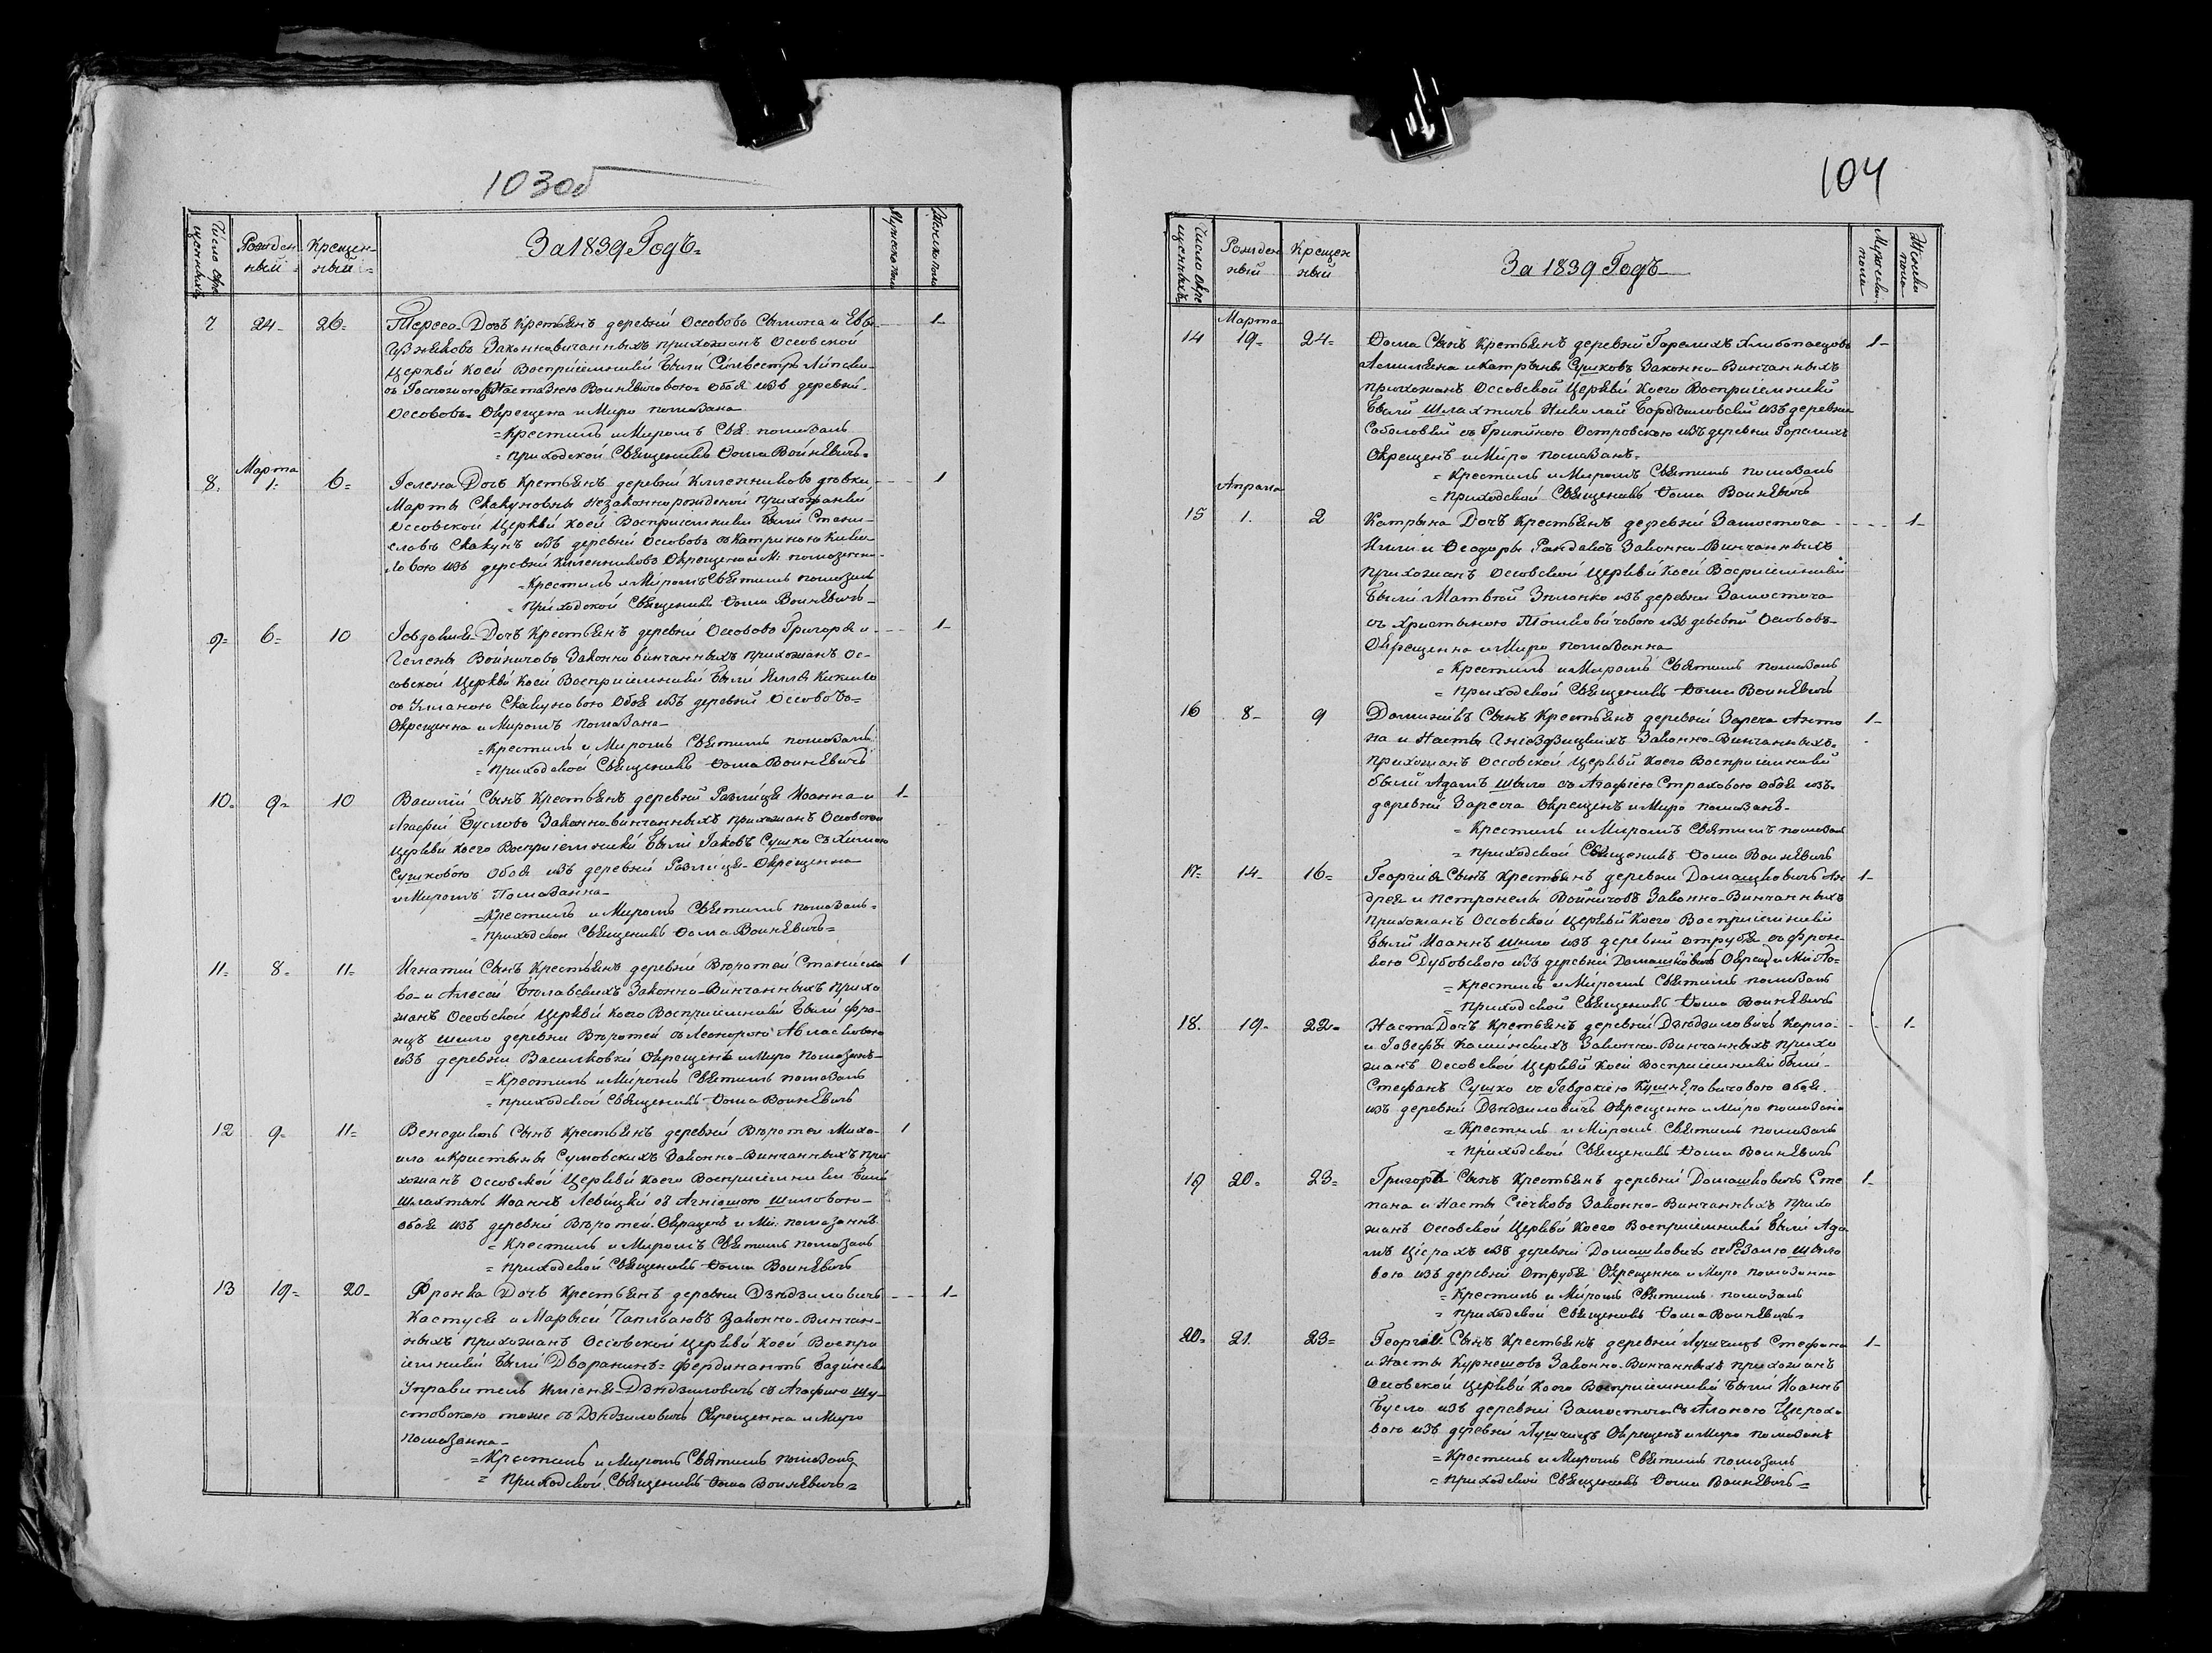 103об
Число окрещенныхъ
Рожденный
Крещенный
За 1839 Годъ
Мужеска пола
Женска пола
7 24 26 Тереса Дочъ Крестьянъ деревни Оссововъ Сымона и Евы 1
Законновинчанныхъ прихожанъ Оссовской
Церкви Коей Восприiемники Были Силвестръ
съ Госпожою Настазiею Войневичовою обоя изъ деревни
Оссововъ Окрещена и Миро помазана
Крестилъ и Миромъ Свя: помазалъ
приходской Священникъ Ѳома Войневичъ
Марта
8 1 6 Гелена Дочъ Крестьянъ деревни дѣвки 1
Марты Скакуновны незаконнорожденой прихожанки
Оссовской Церкви Коей Восприiемники Были Стани-
славъ Скакунъ изъ деревни Оссововъ съ Катриною
изъ деревни Окрещена и М: помазана
Крестилъ и Миромъ Святимъ помазалъ
приходской Священникъ Ѳома Войневичъ
9 6 10 Iевдокия Дочъ Крестьянъ деревни Оссововъ Григоря и 1
Гелены Войничовъ Законно винчанныхъ прихожанъ Ос-
совской Церкви Коей Восприiемники Были Илля
съ Улианою Скакуновою Обоя изъ деревни Оссововъ
Окрещенна и Миромъ помазана
Крестилъ и Миромъ Святимъ помазалъ
приходской Священникъ Ѳома Войневичъ
10 9 10 Василiй Сынъ Крестьянъ деревни Иоанна и 1
Агафiи Бусловъ Законновинчанныхъ прихожанъ Оссовской
Церкви Коего Восприiемники Были Iаковъ Сушко съ
Сушковою Обоя изъ деревни Окрещенна
и Миромъ Помазанна
Крестилъ и Миромъ Святимъ помазалъ
приходской Священникъ Ѳома Войневичъ
11 8 11 Игнатiй Сынъ Крестьянъ деревни Воротей Станисла- 1
ва и Алесей Законно-Винчанныхъ прихо
жанъ Оссовской Церкви Коего Восприiемники Были Фра-
нцъ Шило деревни Воротей съ Леонорою
изъ деревни Василковки Окрещенъ и Миро помазанъ
Крестилъ и Миромъ Святимъ помазалъ
приходской Священникъ Ѳома Войневичъ
12 9 11 Венедиктъ Сынъ Крестьянъ деревни Воротеи Миха- 1
ила и Кристыны Сумовскихъ Законно-Винчанныхъ при
хожанъ Оссовской Церкви Коего Восприiемники Были
Шлахтичъ Иоаннъ Левицкiй съ Агнiешою Шиловою
обоя изъ деревни Воротей Окрещенъ и Ми: помазаннъ
Крестилъ и Миромъ Святимъ помазалъ
приходской Священникъ Ѳома Войневичъ
13 19 20 Франка Дочъ Крестьянъ деревни Дзядзиловичъ 1
Кастуся и Марыси Законно-Винчан-
ныхъ прихожанъ Оссовской Церкви Коей Воспри
iемники Были Дворанинъ Фердинантъ
Управитель Имiеня Дзядзиловичъ съ Агафiю Шу-
стовскою тоже съ Дзядзиловичъ Окрещенна и Миро
помазанна
Крестилъ и Миромъ Святимъ помазалъ
приходской Священникъ Ѳома Войневичъ
104
Число окрещенныхъ
Рожденный
Крещенный
За 1839 Годъ
Мужеска пола
Женска пола
Марта
14 19 24 Ѳома Сынъ Крестьянъ деревни Горелихъ 1
и Катрыны Сушковъ Законно-Винчанныхъ
прихожанъ Оссовской Церкви Коего Восприiемники
Были Шлахтичъ Николай изъ деревни
Соболовки съ Островскою изъ деревни Горелихъ
Окрещенъ и Миро помазанъ
Крестилъ и Миромъ Святимъ помазалъ
приходской Священникъ Ѳома Войневичъ
Апраля
15 1 2 Катрына Дочъ Крестьянъ деревни Замосточа 1
Илiи и Ѳеодоры Законно-Винчанныхъ
прихожанъ Оссовской Церкви Коей Восприiемники
Были Матвѣй изъ деревни Замосточа
съ Христыною изъ деревни Оссововъ
Окрещенна и Миро помазанна
Крестилъ и Миромъ Святимъ помазалъ
приходской Священникъ Ѳома Войневичъ
16 8 9 Доминикъ Сынъ Крестьянъ деревни Зареча Анто 1
на и Насты Гнiездзицкихъ Законно-Винчанныхъ
прихожанъ Оссовской Церкви Коего Восприiемники
были Адамъ Шыло съ Агафiею Страховою обоя изъ
деревни Зареча Окрещенъ и Миро помазанъ
Крестилъ и Миромъ Святимъ помазалъ
приходской Священникъ Ѳома Войневичъ
17 14 16 Георгiя Сынъ Крестьянъ деревни Домашковичъ Ан 1
дрея и Петронелы Войничовъ Законно-Винчанныхъ
прихожанъ Оссовской Церкви Коего Восприiемники
Были Иоаннъ Шыло изъ деревни Отрубя съ Фран-
кою Дубовскою изъ деревни Домашковичъ Окрещ и Ми По=
Крестилъ и Миромъ Святимъ помазалъ
приходской Священникъ Ѳома Войневичъ
18 19 22 Наста Дочъ Крестьянъ деревни Дзядзиловичъ Карла 1
и Iозефы Каминскихъ Законно-Винчанныхъ прихо
жанъ Оссовской Церкви Коей Восприiемники были
Стефанъ Сушко съ Iевдокiею обоя
изъ деревни Дзядзиловичъ Окрещенна и Миро помазана
Крестилъ и Миромъ Святимъ помазалъ
приходской Священникъ Ѳома Войневичъ
19 20 23 Григорй Сынъ Крестьянъ деревни Домашковичъ Сте 1
пана и Насты Сiечковъ Законно-Винчанныхъ прихо
жанъ Оссовской Церкви Коего Восприiемники Были Ада
мъ изъ деревни Домашковичъ съ Розалiю Шыло
вою изъ деревни Отрубя Окрещенна и Миро помазанна
Крестилъ и Миромъ Святимъ помазалъ
приходской Священникъ Ѳома Войневичъ
20 21 23 Георгiй Сынъ Крестьянъ деревни Лущицъ Стефана 1
и Насты Законно-Винчанныхъ прихожанъ
Оссовской Церкви Коего Восприiемники Были Иоаннъ
Бусло изъ деревни Замосточа съ Аланою
вою изъ деревни Лущицъ Окрещенъ и Миро помазанъ
Крестилъ и Миромъ Святимъ помазалъ
приходской Священникъ Ѳома Войневичъ